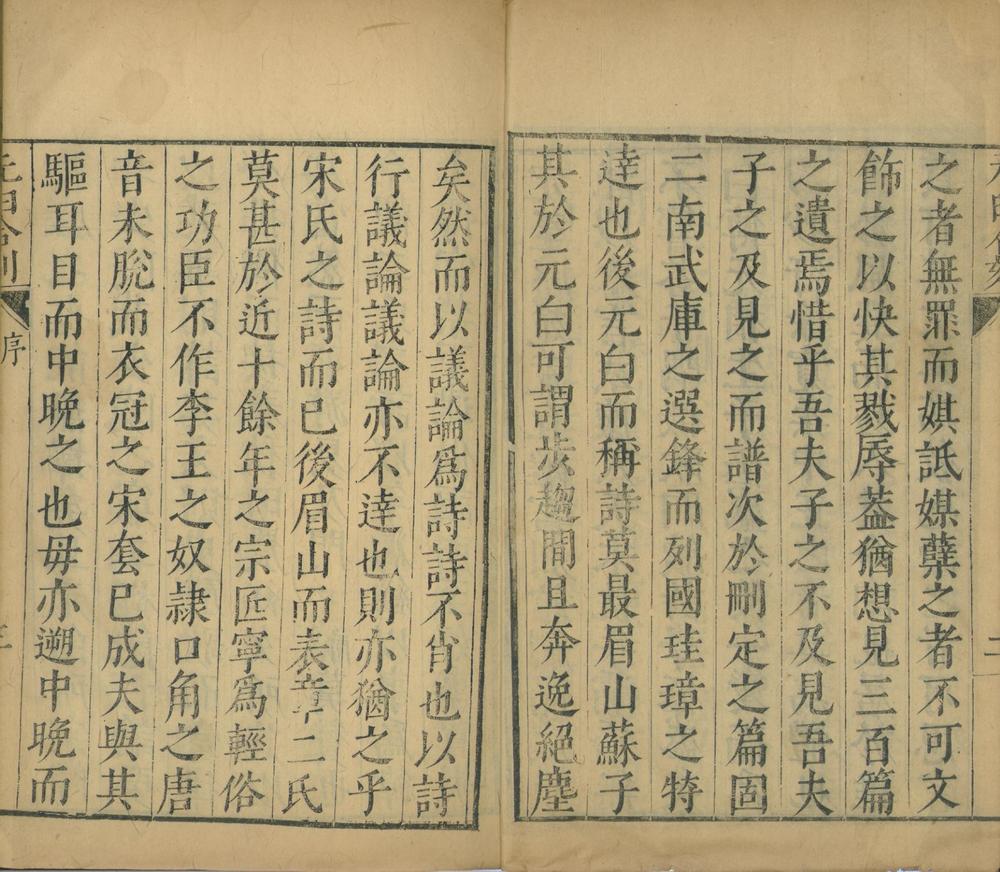 之者無罪而娸詆媒糵之者不可文
飾之以快其戮辱葢猶想見三百篇
之遺焉惜乎吾夫子之不及見吾夫
子之及見之而譜次於刪定之篇固
二南武庫之選鋒而列國珪璋之特
達也後元白而稱詩莫最眉山蘇子
其於元白可謂步趨間且奔逸絕塵
矣然而以議論爲詩詩不肖也以詩
行議論議論亦不達也則亦猶之乎
宋氏之詩而已後眉山而表章二氏
莫甚於近十餘年之宗匠寧爲輕俗
之功臣不作李王之奴隷口角之唐
音未脫而衣冠之宋套已成夫與其
驅耳目而中晚之也毋亦遡中晚而
序